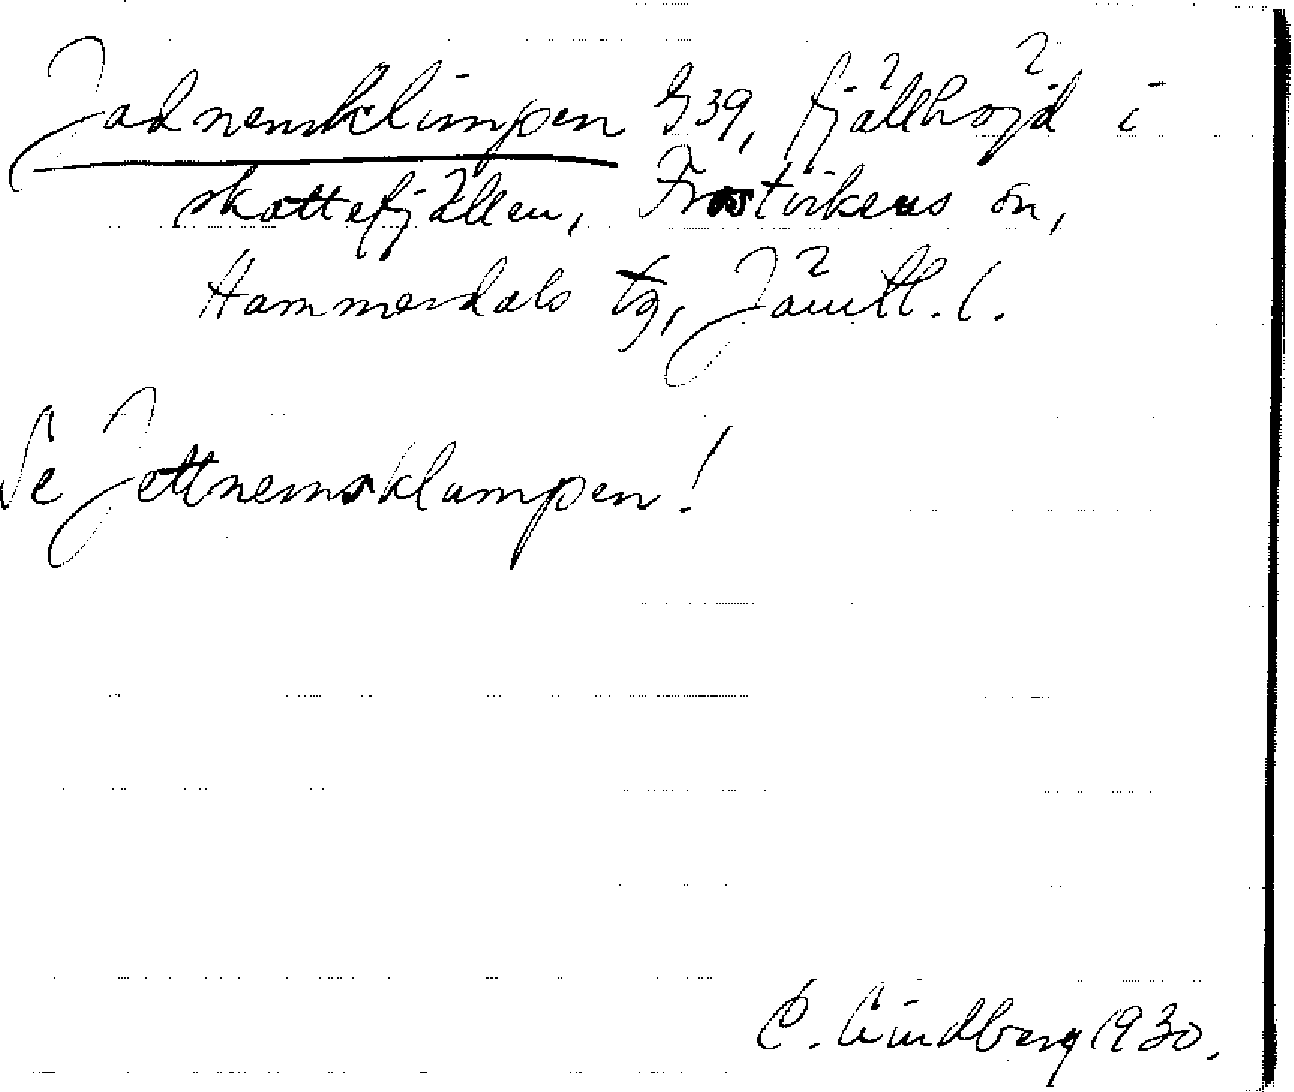 Jadnemklimpen G39, fjällhöjd i
skattefjällen, Frostvikens sn,
Hammerdals tg, Jämtl. l.
Se Jettnemsklumpen!
C. Lindberg 1930.